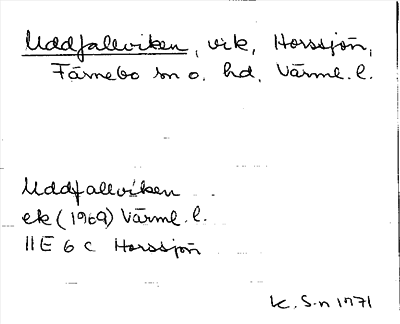 Uddfallviken, vik, Horssjön,
Färnebo sn o. hd, Värml. l.
Uddfallviken
ek (1969) Värml. l.
11E 6 c Horssjön
K. S-n 1971